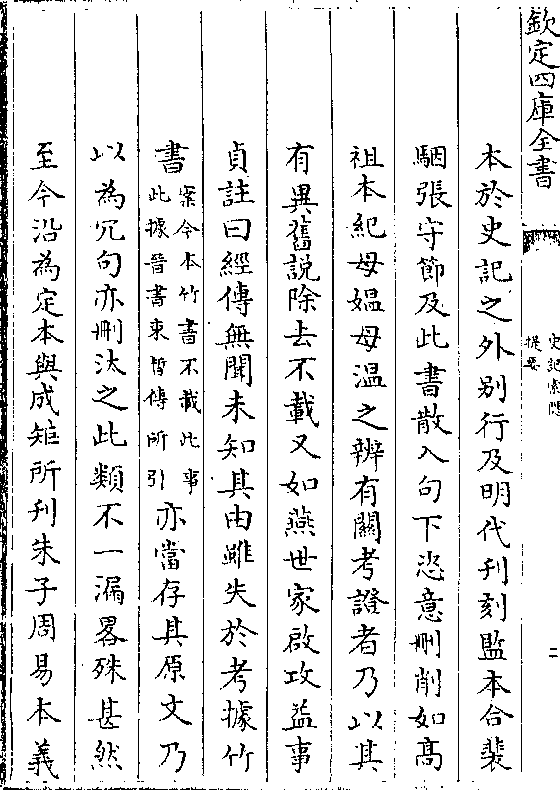 欽定四庫全書
史記索隱
提要
二
本於史記之外别行及明代刊刻監本合裴
駰張守節及此書散入句下恣意刪削如高
祖本紀母媪母温之辨有關考證者乃以其
有異舊説除去不載又如燕世家啟攻益事
貞註曰經傳無聞未知其由雖失於考據竹
書案今本竹書不載此事此據晉書束晳傳所引亦當存其原文乃
以為冗句亦刪汰之此類不一漏畧殊甚然
至今沿為定本與成矩所刋朱子周易本義